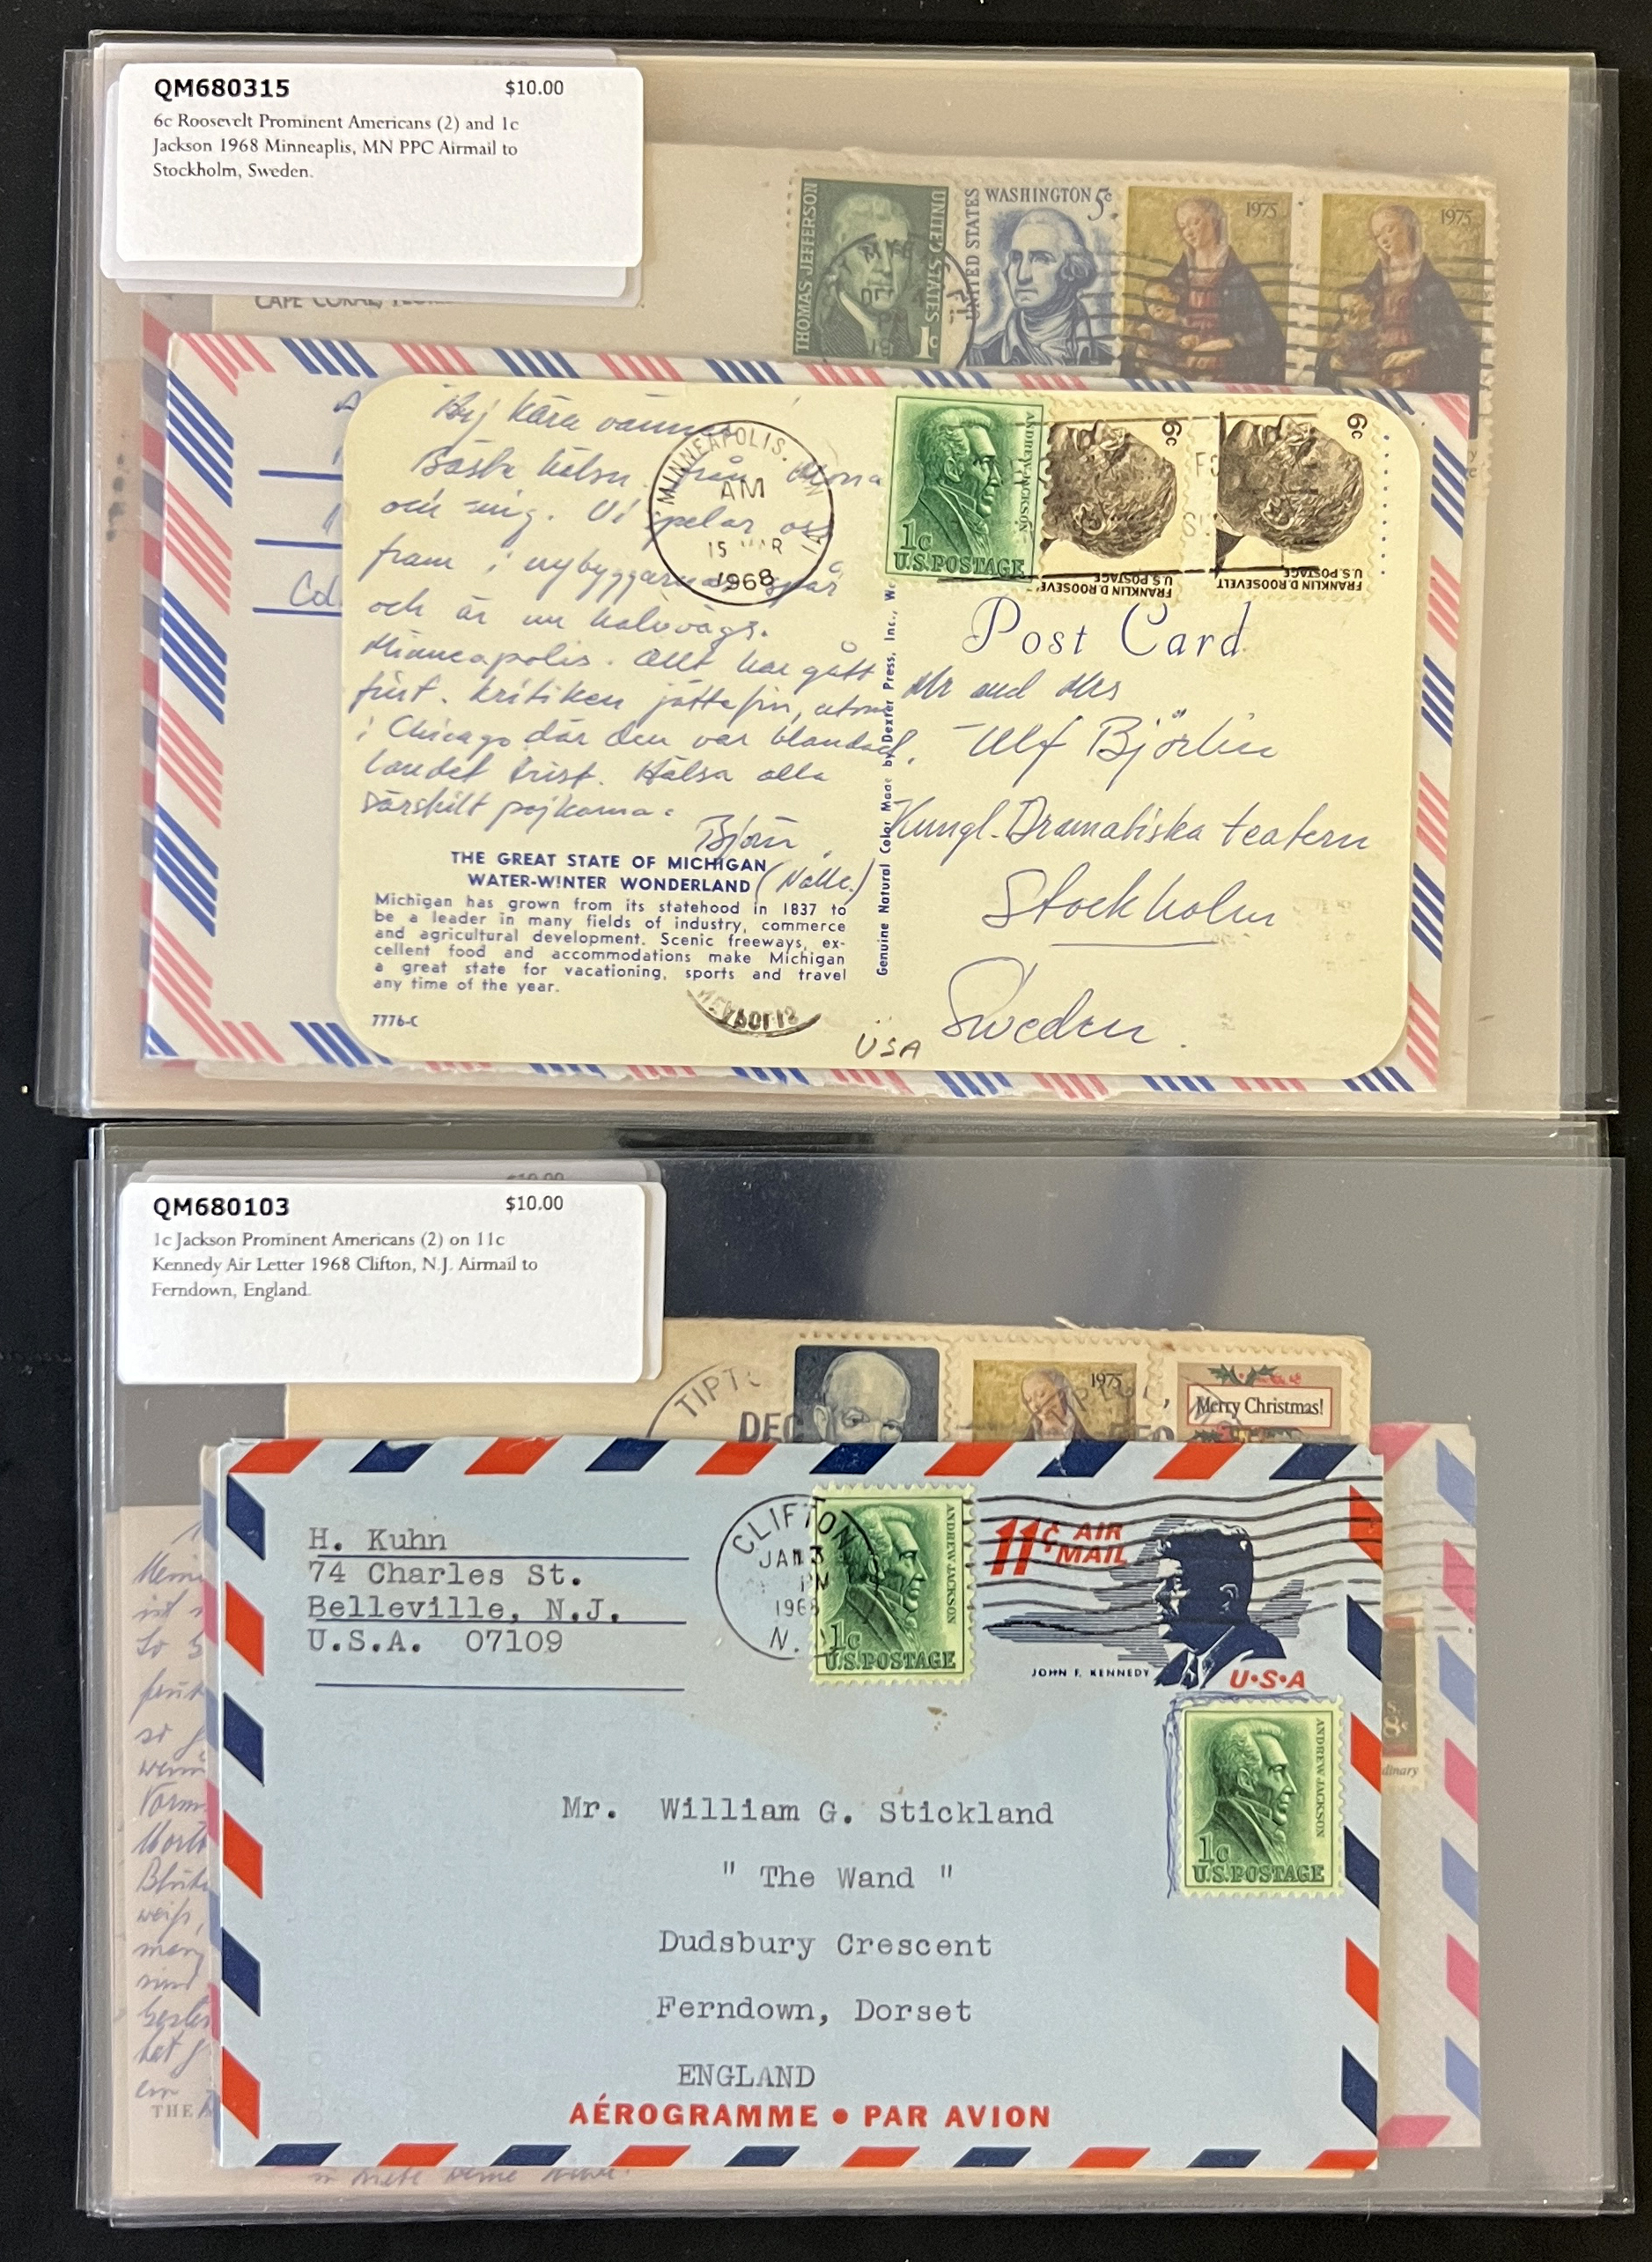 QM680315 $10.00
6c Roosevelt Prominent Americans (2) and 1c
Jackson 1968 Minneaplis, MN PPC Airmail to
Stockholm, Sweden.
CAPE CORAL,
THOMAS JEFFERSON
UNITED STATES
1c
UNITED STATES
WASHINGTON 5c
1975
1975
Col
Hej kära vänner
Bästa hälsn från Mona
och mig. Vi spelar oss
fram i nybyggarnas spår
och är nu halvvägs.
Minneapolis. Allt har gått
fint. Kritiken jättefin, utom
i Chicago där den var blandad.
Landet trist. Hälsa alla
särskilt pojkarna.
Björn
(Nalle.)
MINNEAPOLIS.
AM
15 MAR
1968
ANDREW JACKSON
1c
U.S. POSTAGE
6c
FRANKLIN D. ROOSEVE
U.S. POSTAGE
6c
FRANKLIN D. ROOSEVELT
U.S. POSTAGE
Post Card
Mr and Mrs
Ulf Björlin
Kungl. Dramatiska teatern
Stockholm
Sweden.
USA
Genuine Natural Color Made by Dexter Press, Inc., W.
THE GREAT STATE OF MICHIGAN
WATER-WINTER WONDERLAND
Michigan has grown from its statehood in 1837 to
be a leader in many fields of industry, commerce
and agricultural development. Scenic freeways, ex-
cellent food and accommodations make Michigan
a great state for vacationing, sports and travel
any time of the year.
7776-C
QM680103 $10.00
1c Jackson Prominent Americans (2) on 11c
Kennedy Air Letter 1968 Clifton, N.J. Airmail to
Ferndown, England.
TIPT
DEC
1975
Merry Christmas!
H. Kuhn
74 Charles St.
Belleville, N.J.
U.S.A. 07109
CLIFTON
JAN 3
PM
1968
N.
ANDREW JACKSON
1c
U.S. POSTAGE
11¢ AIR
MAIL
JOHN F. KENNEDY
U•S•A
ANDREW JACKSON
1c
U.S. POSTAGE
8c
dinary
Mr. William G. Stickland
" The Wand "
Dudsbury Crescent
Ferndown, Dorset
ENGLAND
AÉROGRAMME • PAR AVION
THE